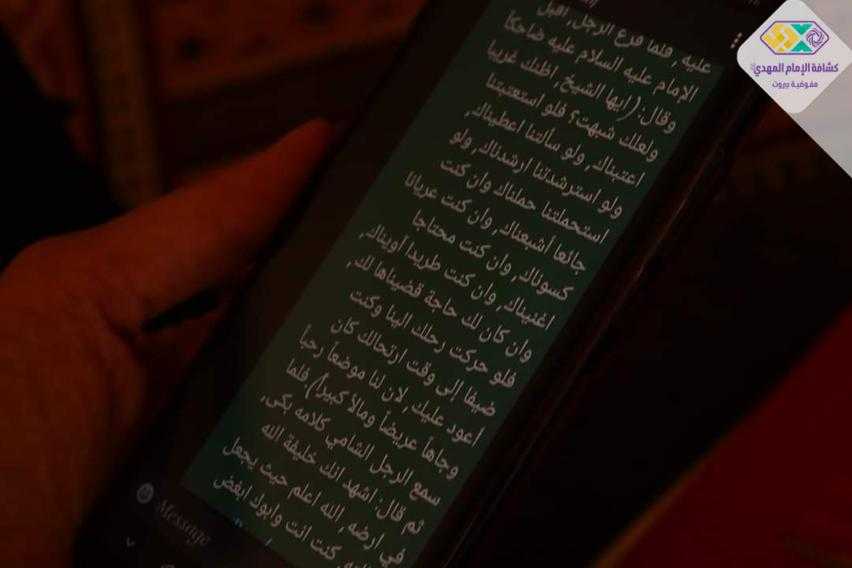 عليه, فلما فرغ الرجل, اقبل
الإمام عليه السلام عليه ضاحكاً
وقال: (ايها الشيخ, اظنك غريبا
ولعلك شبهت؟ فلو استعتبتنا
اعتبناك, ولو سألتنا اعطيناك,
ولو استرشدتنا ارشدناك, ولو
استحملتنا حملناك وان كنت
جائعا أشبعناك, وان كنت عريانا
كسوناك, وان كنت محتاجا
اغنيناك, وان كنت طريدا آويناك,
وان كان لك حاجة قضيناها لك,
فلو حركت رحلك الينا وكنت
ضيفا إلى وقت ارتحالك كان
أعود عليك, لان لنا موضعاً رحباً
وجاهاً عريضاً ومالاً كبيراً).فلما
سمع الرجل الشامي كلامه بكى,
ثم قال: اشهد انك خليفة الله
في ارضه, الله اعلم حيث يجعل
كنت انت وابوك ابغض
Message
كشافة الإمام المهدي
مفوضية بيروت